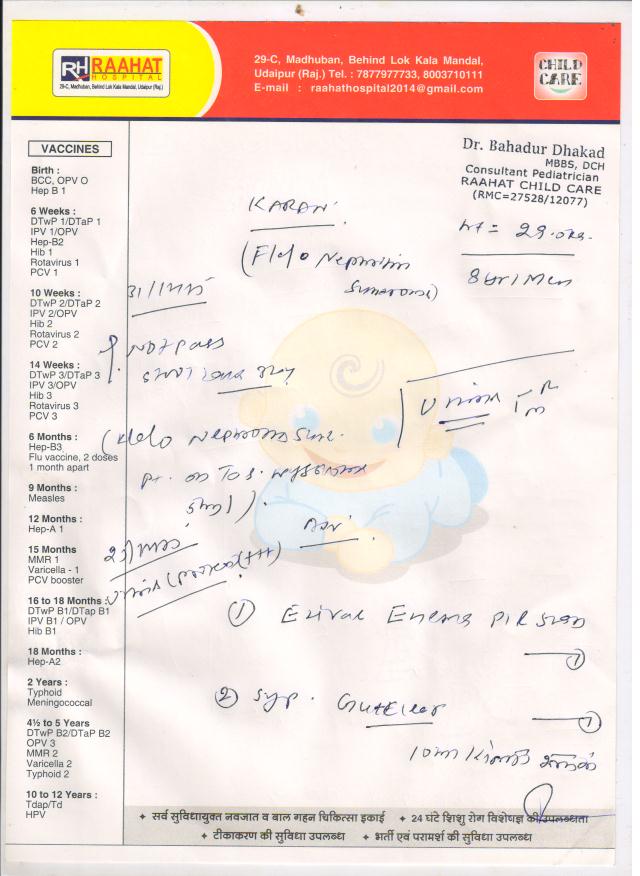 RH RAAHAT
HOSPITAL
29-C, Madhuban, Behind Lok Kala Mandal, Udaipur (Raj.)
29-C, Madhuban, Behind Lok Kala Mandal,
Udaipur (Raj.) Tel. : 7877977733, 8003710111
E-mail : raahathospital2014@gmail.com
CHILD
CARE
Dr. Bahadur Dhakad
MBBS, DCH
Consultant Pediatrician
RAAHAT CHILD CARE
(RMC=27528/12077)
VACCINES
Birth :
BCC, OPV O
Hep B 1
6 Weeks :
DTwP 1/DTaP 1
IPV 1/OPV
Hep-B2
Hib 1
Rotavirus 1
PCV 1
10 Weeks :
DTwP 2/DTaP 2
IPV 2/OPV
Hib 2
Rotavirus 2
PCV 2
14 Weeks :
DTwP 3/DTaP 3
IPV 3/OPV
Hib 3
Rotavirus 3
PCV 3
6 Months :
Hep-B3
Flu vaccine, 2 doses
1 month apart
9 Months :
Measles
12 Months :
Hep-A 1
15 Months
MMR 1
Varicella - 1
PCV booster
16 to 18 Months :
DTwP B1/DTap B1
IPV B1 / OPV
Hib B1
18 Months :
Hep-A2
2 Years :
Typhoid
Meningococcal
4½ to 5 Years
DTwP B2/DTaP B2
OPV 3
MMR 2
Varicella 2
Typhoid 2
10 to 12 Years :
Tdap/Td
HPV
KARAN
wt = 29
Nephrotic
Not pass
Urine
Adv
Urine
(1) Enema P/R
(1)
(2) Syp.
(1)
10ml
✦ सर्व सुविधायुक्त नवजात व बाल गहन चिकित्सा इकाई ✦ 24 घंटे शिशु रोग विशेषज्ञ की उपलब्धता
✦ टीकाकरण की सुविधा उपलब्ध ✦ भर्ती एवं परामर्श की सुविधा उपलब्ध